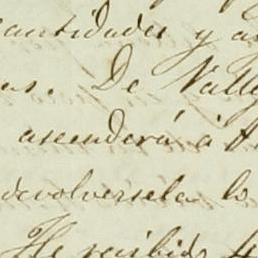 cantidades y a
as. De Vall
ascenderá á
devolversela lo
He recibido